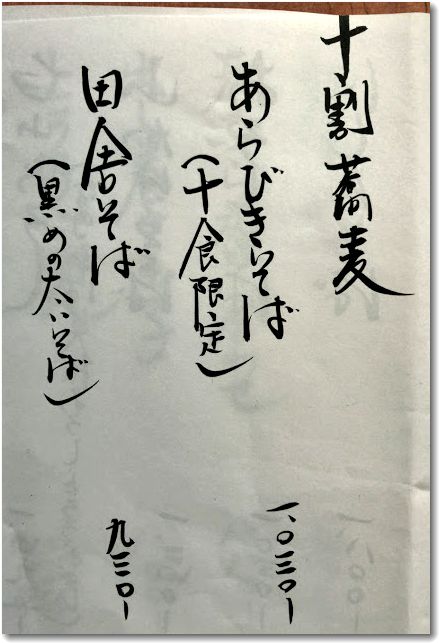 十割蕎麦
あらびきそば
(十食限定)
一、〇三〇ー
田舎そば
(黒めの太いそば)
九三〇ー